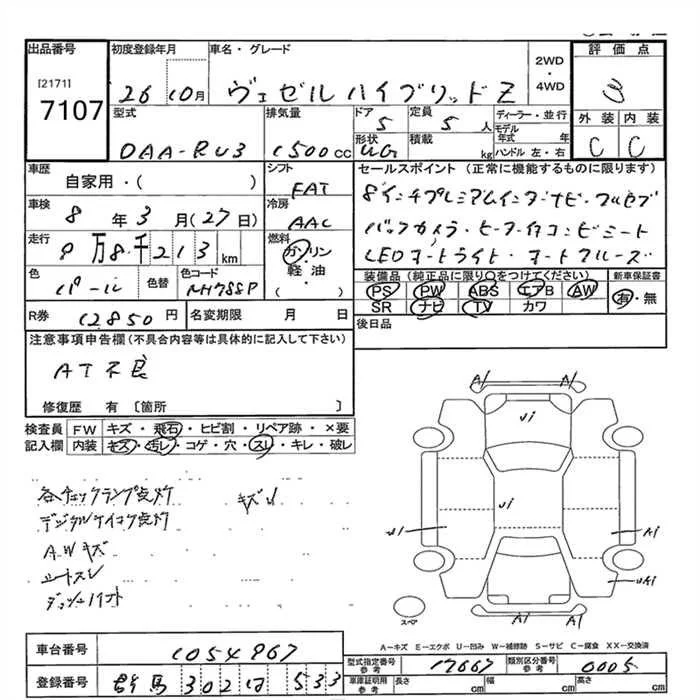 出品番号 初度登録年月 車名・グレード 評価点
[2171] 7107 26 10月 ヴェゼルハイブリッドZ 2WD・4WD 3
型式 排気量 ドア 定員 ディーラー・並行 外装 内装
DAA-RU3 1500cc 5 5人 モデル年式 年 C C
形状 積載 kg ハンドル 左・右
車歴 シフト セールスポイント(正常に機能するものに限ります)
自家用・( ) FAT 8インチプレミアムインターナビ・フルセグ
車検 冷房 バックカメラ・
8年3月(27日) AAC
走行 燃料 LEDオートライト・オートクルーズ
8万8千213km ガソリン
軽油・( )
色 色替 色コード 装備品(純正品に限り○をつけてください) 新車保証書
パール NH788P PS PW ABS エアB AW 有・無
SR ナビ TV カワ
R券 12850円 名変期限 月 日 後日品
注意事項申告欄(不具合内容等は具体的に記入して下さい)
AT不良
修復歴 有 〔箇所 〕
検査員 FW キズ・飛石・ヒビ割・リペア跡・×要
記入欄 内装 キズ・汚レ・コゲ・穴・スレ・キレ・破レ
各チェックランプ点灯 キズU
デジタルケイコク点灯
AWキズ
シートスレ
A1 A1
Ui
Ui
U1 A1
UAi
A1 A1
スペア
A-キズ E-エクボ U-凹み W-補修跡 S-サビ C-腐食 XX-交換済
車台番号 1054967 型式指定番号 参考 17667 類別区分番号 参考 0005
登録番号 群馬 302 は 533 車庫証明用 参考 長さ cm 幅 cm 高さ cm